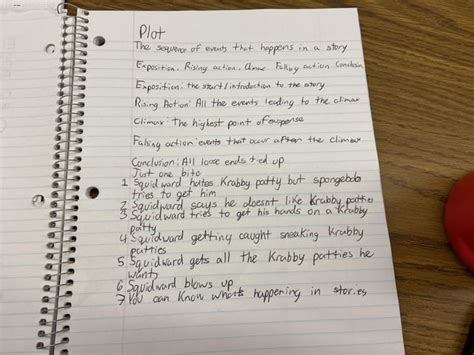 Plot
The sequence of events that happens in a story
Exposition, Rising action, Climax, Falling action Conclusion
Exposition: the start/introduction to the story
Rising Action: All the events leading to the climax
Climax: The highest point of suspense
Falling action: events that occur after the climax
Conclusion: All loose ends tied up
Just one bite
1 Squidward hates Krabby patty but spongebob
tries to get him
2 Squidward says he doesnt like Krabby patties
3 Squidward tries to get his hands on a Krabby
patty
4 Squidward getting caught sneaking Krabby
patties
5 Squidward gets all the Krabby patties he
wants
6 Squidward blows up
7 You can know whats happening in stories